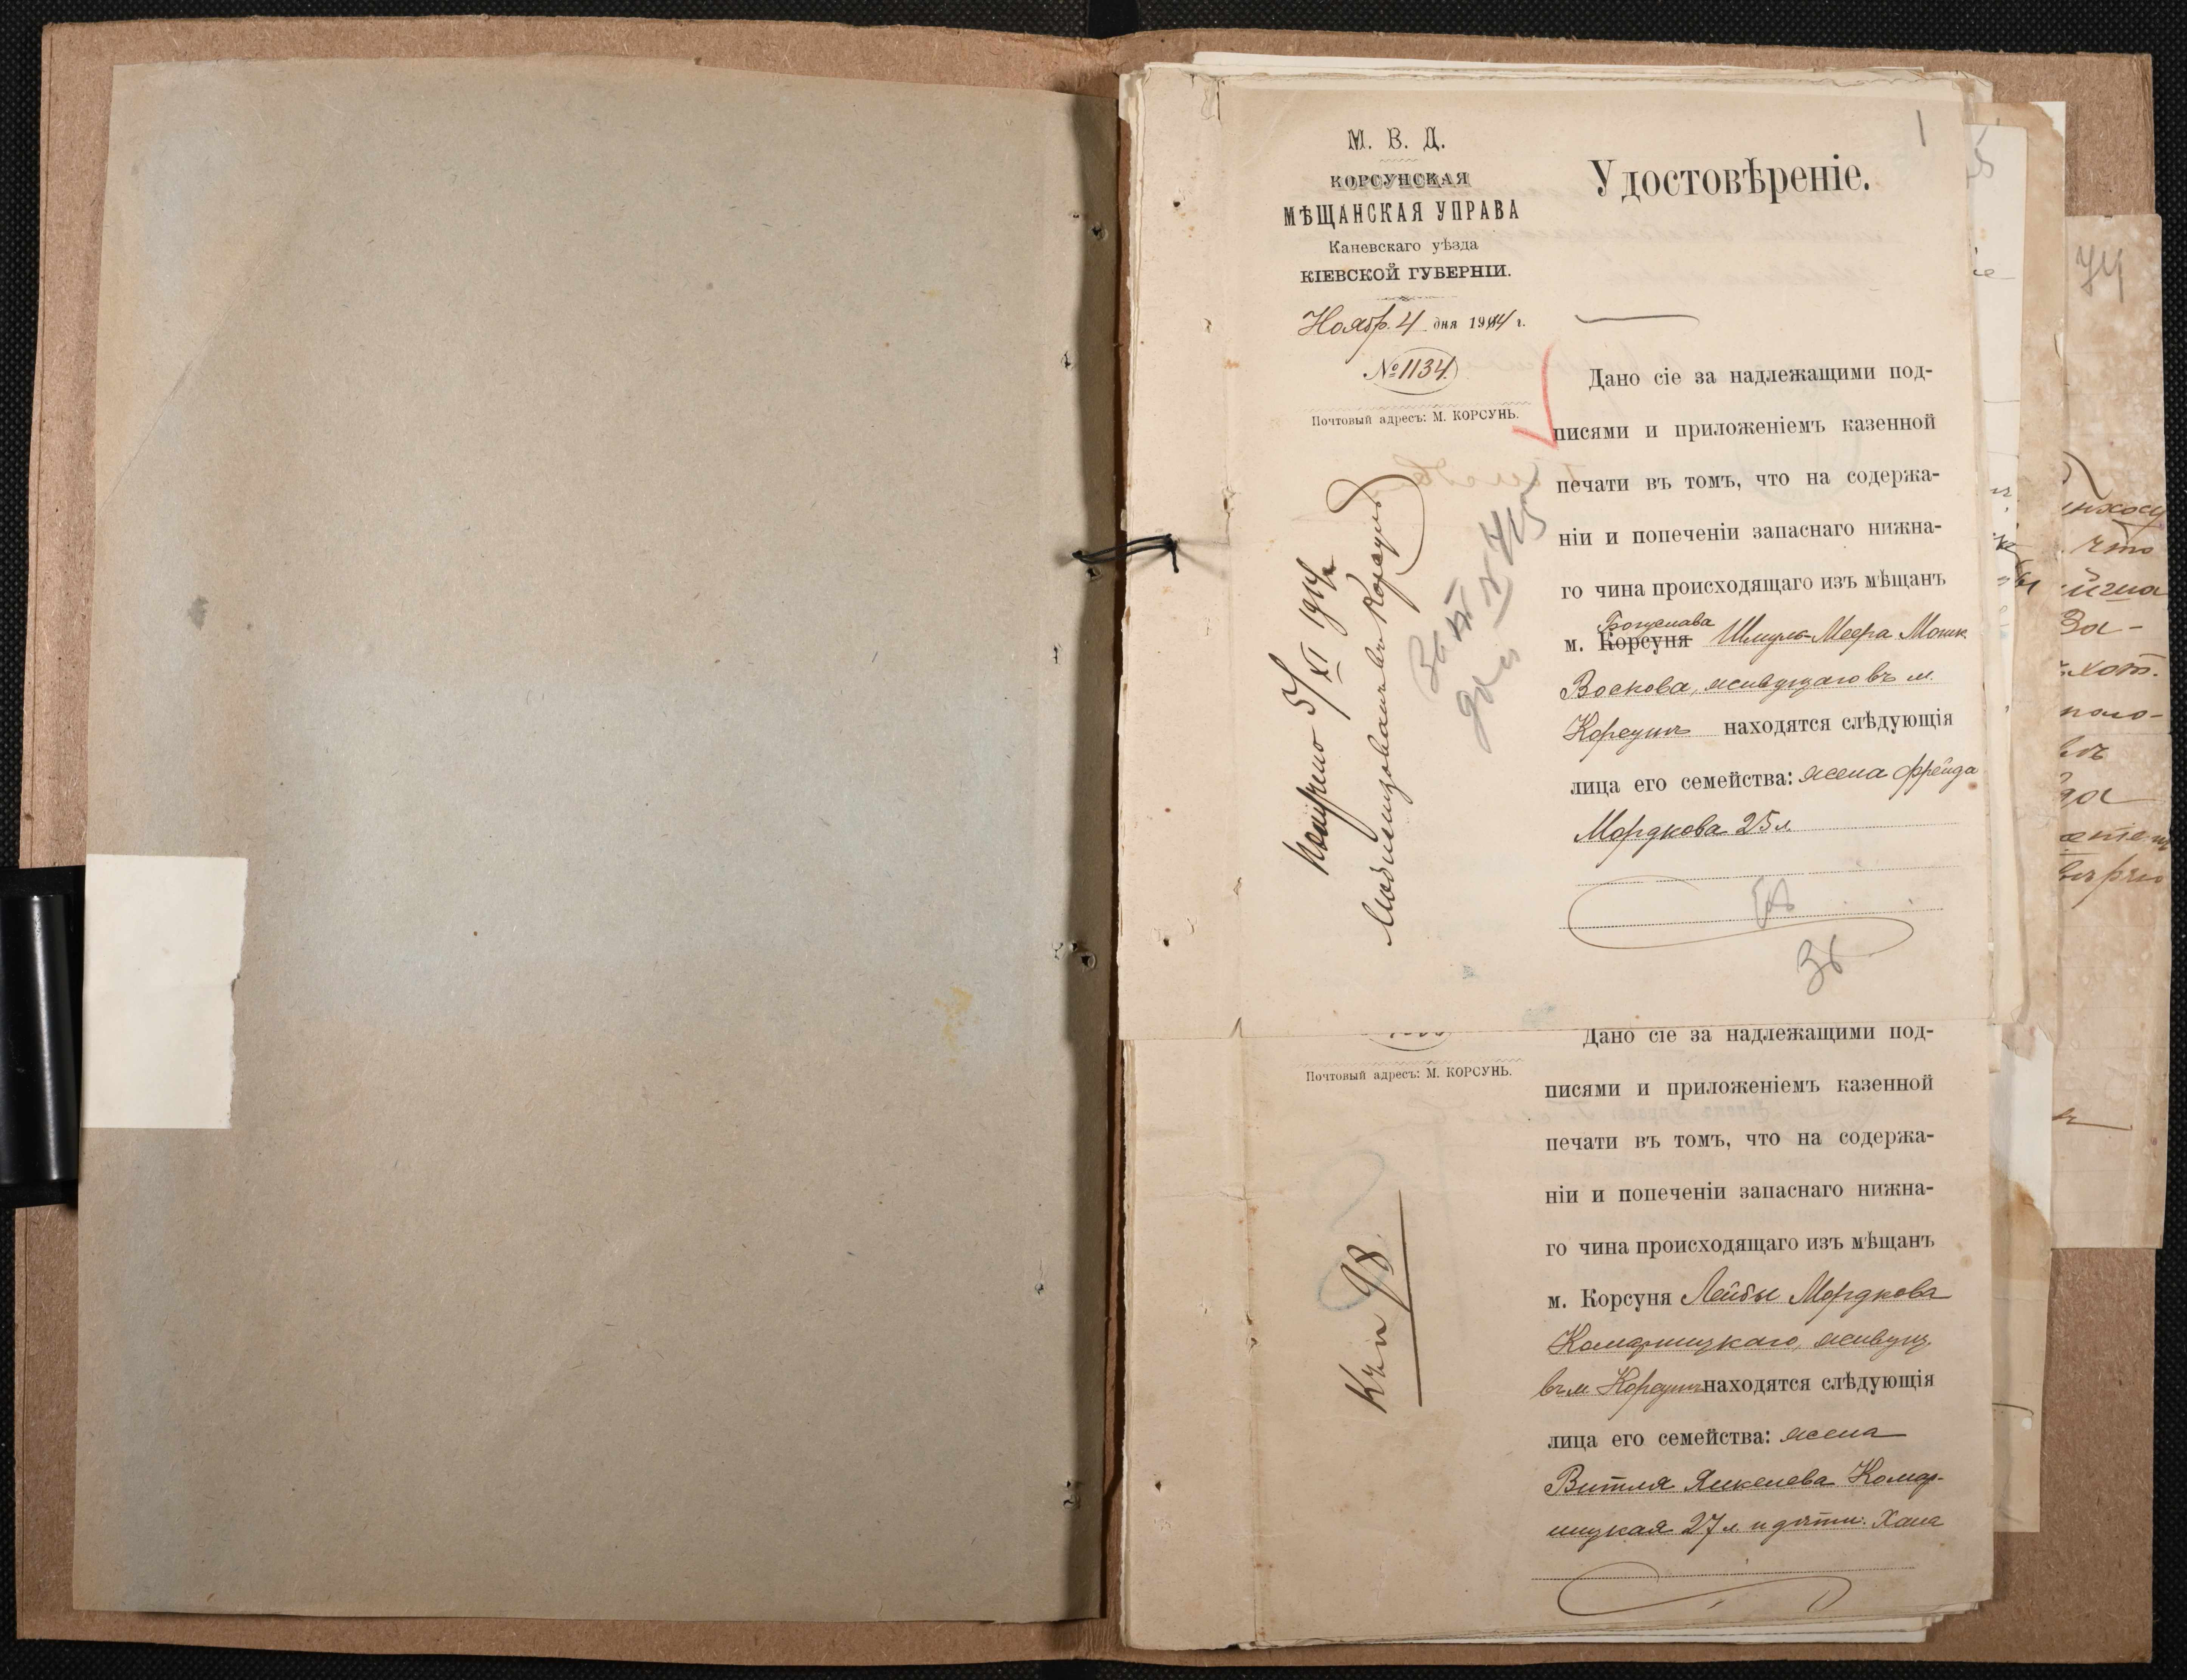 1
М. В. Д.
КОРСУНСКАЯ
МѢЩАНСКАЯ УПРАВА
Каневскаго уѣзда
КІЕВСКОЙ ГУБЕРНІИ.
Ноябр. 4 дня 1914 г.
№ 1134.
Почтовый адресъ: М. КОРСУНЬ.
Получено 5/XI 1914 г.
Мобилизованъ въ Корсунѣ
Удостовѣреніе.
Дано сіе за надлежащими под-
писями и приложеніемъ казенной
печати въ томъ, что на содержа-
ніи и попеченіи запаснаго нижна-
го чина происходящаго изъ мѣщанъ
Богуслава
м. Корсуня Шмуль-Меера Мошк.
Воскова, живущаго въ м.
Корсунѣ находятся слѣдующія
лица его семейства: жена Фрейда
Мордкова 25 л.
36
Почтовый адресъ: М. КОРСУНЬ.
К. п. 98
Дано сіе за надлежащими под-
писями и приложеніемъ казенной
печати въ томъ, что на содержа-
ніи и попеченіи запаснаго нижна-
го чина происходящаго изъ мѣщанъ
м. Корсуня Лейбы Мордкова
Комарницкаго, живущ.
въ м. Корсунѣ находятся слѣдующія
лица его семейства: жена
Витля Янкелева Комар-
ницкая 27 л. и дѣти: Хана
74
что
За-